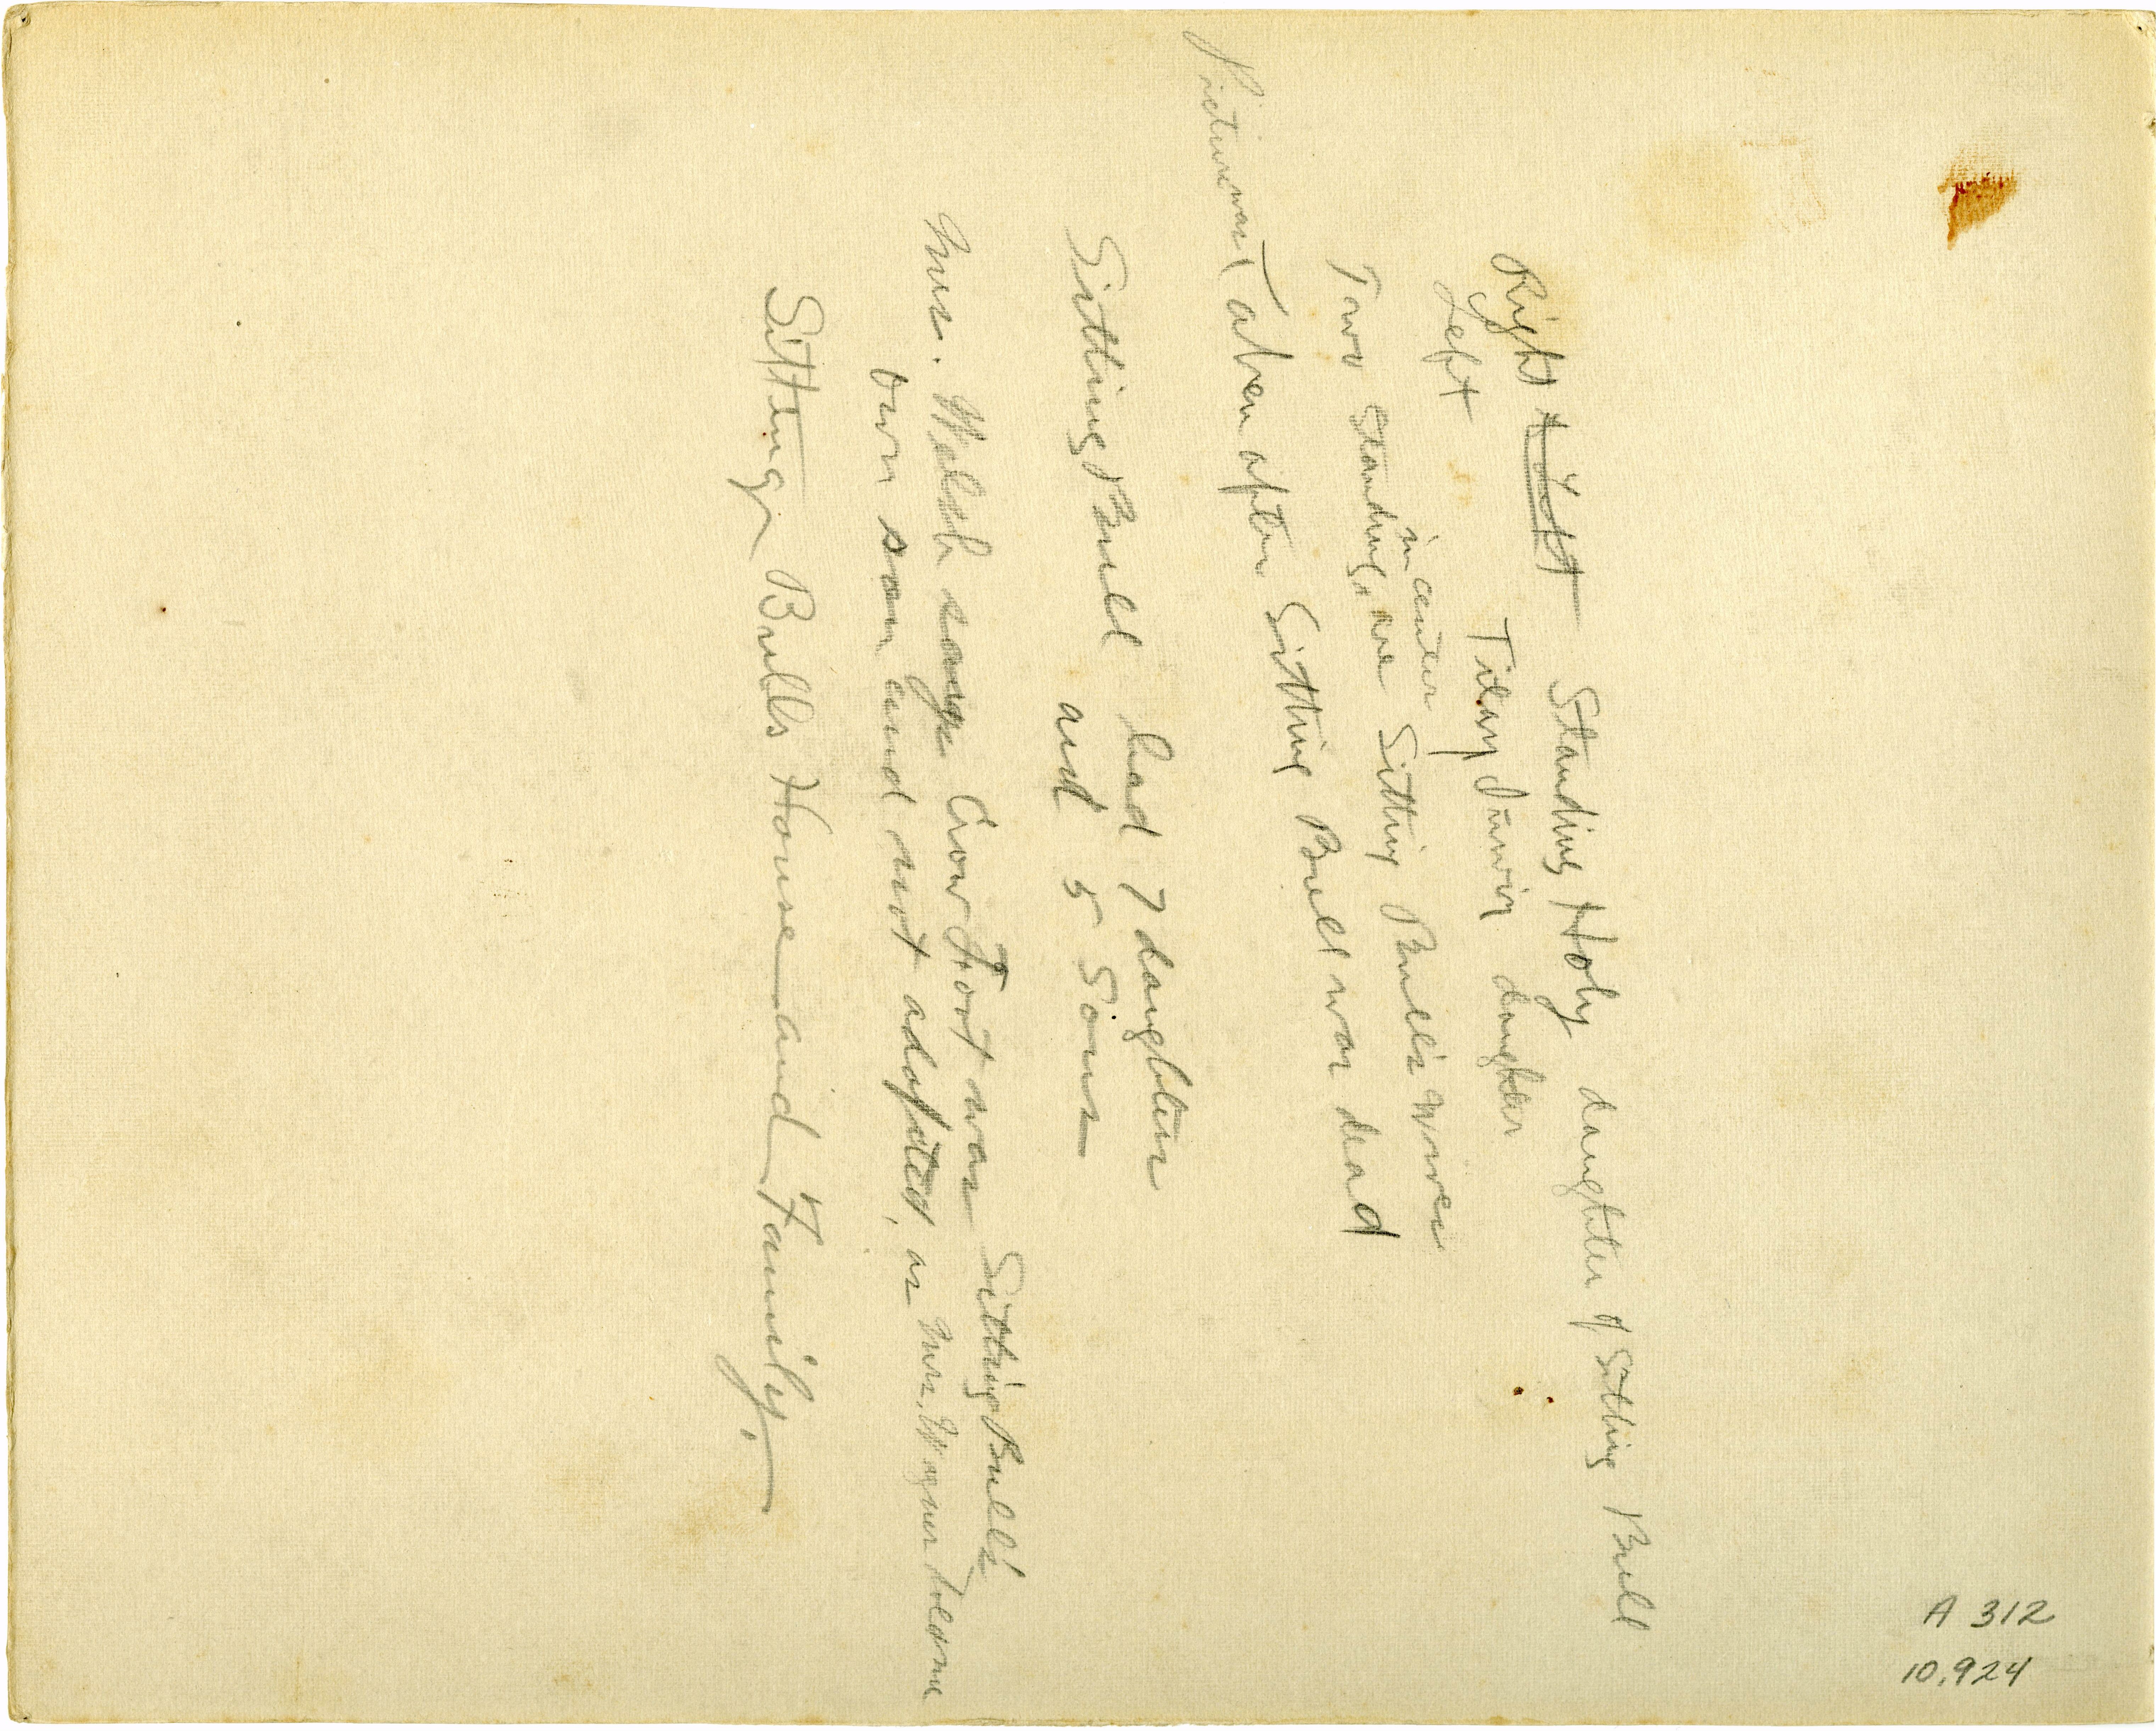 Right ~~Left~~ Standing Holy daughter of Sitting Bull
Left Daughter
in center
Two Standing, are Sitting Bull's wives
Picture was Taken after Sitting Bull was dead
Sitting Bull had 7 daughters
and 5 Sons
Mrs. Welsh says Crow Foot was Sitting Bull's
own son and not adopted, as Mrs.
Sitting Bulls House and Family.
A 312
10.924